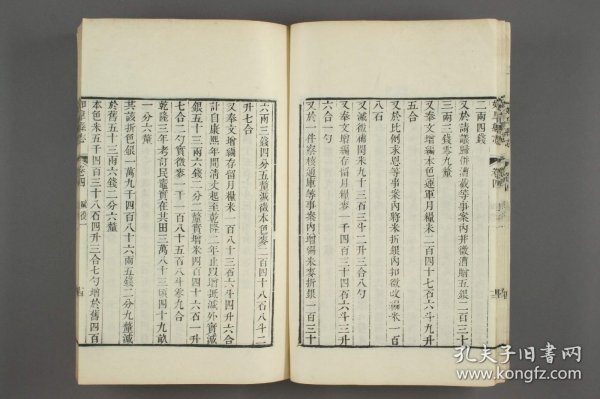 二兩四錢
又於請議歸併漕截等事案內并徵漕贈五銀二百三十
三兩三錢零九釐
又奉文增編本色運軍月糧米二百四十七石六斗九升
五合
又於比例求恩等事案內將米折銀內扣徵改編米一百
八石
又減徵補閏米九十三石三斗二升三合八勺
又奉文增編存留月糧米一千四百三十一石六斗三升
六合一勺
又於一件察核通庫等事案內增編米麥折銀一百三十
六兩三錢四分五釐減徵本色麥二百四十八石八斗二
升七合
又奉文增編存留月糧米一百八十三石六斗四升六合
計自康熙年間清丈起至乾隆二年止
銀五十三兩六錢二分二釐實增米四百四十六石一升
七合二勺實徵麥一千一百八十五石八斗零九合
乾隆三年考訂民竈實在共田三萬八十三頃四十九畝
一分六釐
其該折色銀一萬九千四百八十六兩五錢二分九釐減
於舊五十三兩六錢二分六釐
本色米五千四百三十八石四升三合七勺增於舊四百
卷四
賦役一
孔夫子旧书网
www.kongfz.com